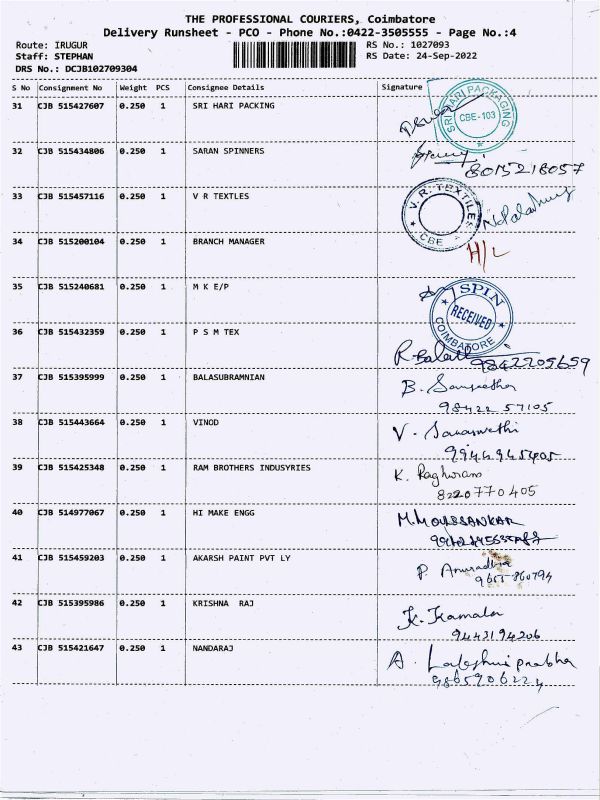 THE PROFESSIONAL COURIERS, Coimbatore
Delivery Runsheet - PCO - Phone No.:0422-3505555 - Page No.:4
Route: IRUGUR RS No.: 1027093
Staff: STEPHAN RS Date: 24-Sep-2022
DRS No.: DCJB102709304
S No Consignment No Weight PCS Consignee Details Signature
31 CJB 515427607 0.250 1 SRI HARI PACKING
SRI HARI PACKAGING CBE-103
32 CJB 515434806 0.250 1 SARAN SPINNERS
8015218057
33 CJB 515457116 0.250 1 V R TEXTLES
V. R. TEXTILES CBE
34 CJB 515200104 0.250 1 BRANCH MANAGER H/L
35 CJB 515240681 0.250 1 M K E/P
SPIN RECEIVED COIMBATORE
36 CJB 515432359 0.250 1 P S M TEX
9842205659
37 CJB 515395999 0.250 1 BALASUBRAMNIAN B. Sangeetha
98422 57105
38 CJB 515443664 0.250 1 VINOD V. Saraswethi
39 CJB 515425348 0.250 1 RAM BROTHERS INDUSYRIES K. Raghuram
8220770405
40 CJB 514977067 0.250 1 HI MAKE ENGG
41 CJB 515459203 0.250 1 AKARSH PAINT PVT LY P. Anuradha
9655-860794
42 CJB 515395986 0.250 1 KRISHNA RAJ K. Kamala
9443194206
43 CJB 515421647 0.250 1 NANDARAJ A.
9865906224